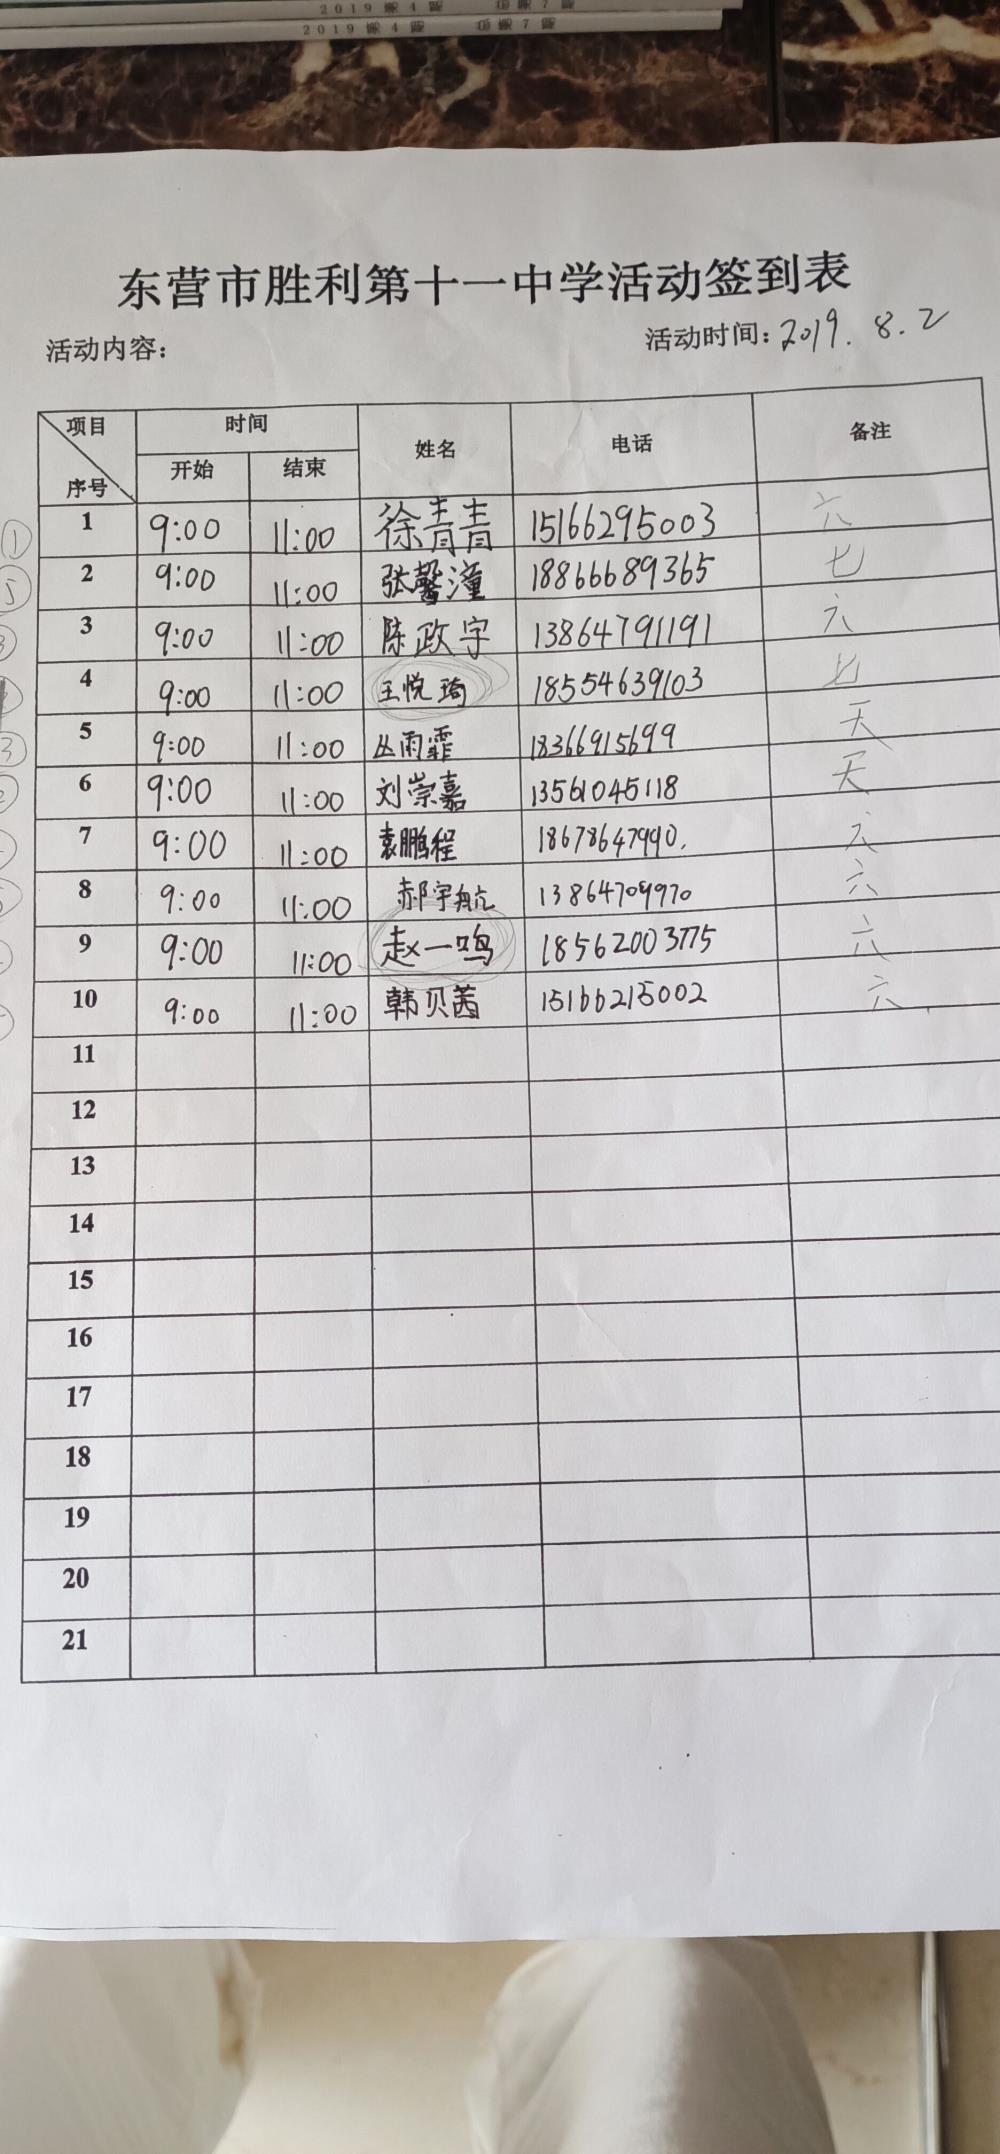 2019第4期
2019第4期
东营市胜利第十一中学活动签到表
活动内容：
活动时间：2019.8.2
项目 时间 姓名 电话 备注
序号 开始 结束
1 9:00 11:00 徐青青 15166295003 六
2 9:00 11:00 张馨潼 18866689365 七
3 9:00 11:00 陈政宇 13864791191 六
4 9:00 11:00 王悦琦 18554639103 七
5 9:00 11:00 丛雨霏 18366915699 天
6 9:00 11:00 刘崇嘉 13561045118 天
7 9:00 11:00 袁鹏程 18678647990. 六
8 9:00 11:00 郝宇航 13864709970 六
9 9:00 11:00 赵一鸣 18562003775 六
10 9:00 11:00 韩贝茜 15166215002 六
11
12
13
14
15
16
17
18
19
20
21